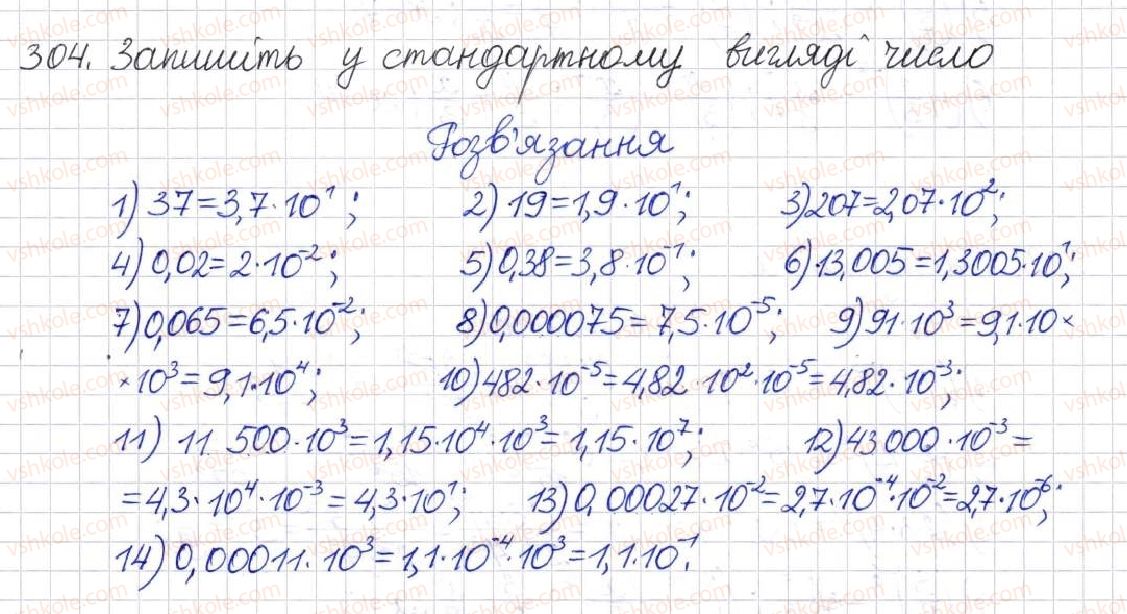 304. Запишіть у стандартному вигляді число
Розв'язання
1) 37=3,7·10¹; 2) 19=1,9·10¹; 3) 207=2,07·10²;
4) 0,02=2·10⁻²; 5) 0,38=3,8·10⁻¹; 6) 13,005=1,3005·10¹;
7) 0,065=6,5·10⁻²; 8) 0,000075=7,5·10⁻⁵; 9) 91·10³=9,1·10×
×10³=9,1·10⁴; 10) 482·10⁻⁵=4,82·10²·10⁻⁵=4,82·10⁻³;
11) 11 500·10³=1,15·10⁴·10³=1,15·10⁷; 12) 43 000·10⁻³=
=4,3·10⁴·10⁻³=4,3·10¹; 13) 0,00027·10⁻²=2,7·10⁻⁴·10⁻²=2,7·10⁻⁶;
14) 0,00011·10³=1,1·10⁻⁴·10³=1,1·10⁻¹.